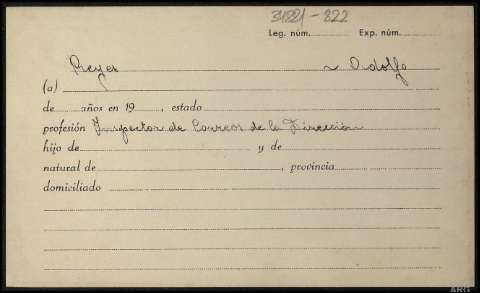 34881-822
Leg. núm. Exp. núm.
Reyes ~ Adolfo
(a)
de años en 19 , estado
profesión Inspector de Correos de la Dirección
hijo de y de
natural de , provincia
domiciliado